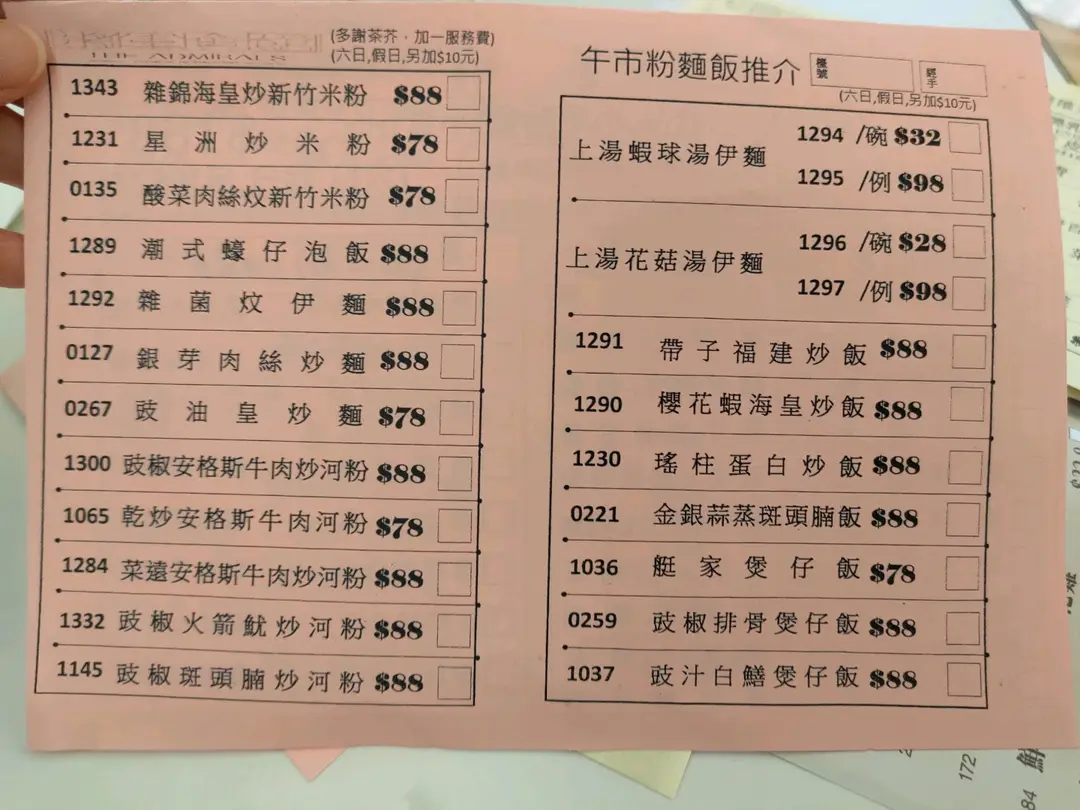 (多謝茶芥，加一服務費)
(六日,假日,另加$10元)
1343 雜錦海皇炒新竹米粉 $88
1231 星洲炒米粉 $78
0135 酸菜肉絲炆新竹米粉 $78
1289 潮式蠔仔泡飯 $88
1292 雜菌炆伊麵 $88
0127 銀芽肉絲炒麵 $88
0267 豉油皇炒麵 $78
1300 豉椒安格斯牛肉炒河粉 $88
1065 乾炒安格斯牛肉河粉 $78
1284 菜遠安格斯牛肉炒河粉 $88
1332 豉椒火箭魷炒河粉 $88
1145 豉椒斑頭腩炒河粉 $88
午市粉麵飯推介
檯號
經手
(六日,假日,另加$10元)
上湯蝦球湯伊麵
1294 /碗 $32
1295 /例 $98
上湯花菇湯伊麵
1296 /碗 $28
1297 /例 $98
1291 帶子福建炒飯 $88
1290 櫻花蝦海皇炒飯 $88
1230 瑤柱蛋白炒飯 $88
0221 金銀蒜蒸斑頭腩飯 $88
1036 艇家煲仔飯 $78
0259 豉椒排骨煲仔飯 $88
1037 豉汁白鱔煲仔飯 $88
172
84